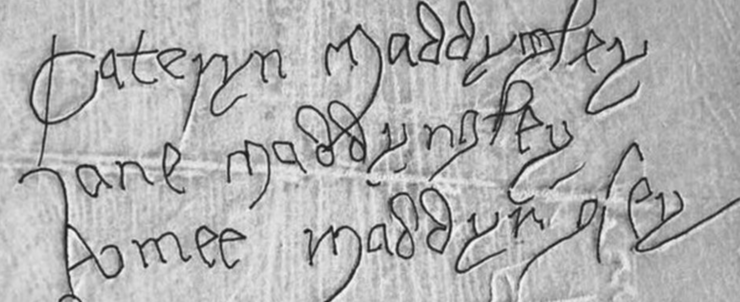 Cateryn maddyngley
Jane maddyngley
Amee maddyngley